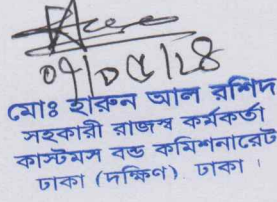 মোঃ হারুন আল রশিদ
সহকারী রাজস্ব কর্মকর্তা
কাস্টমস বন্ড কমিশনারেট
ঢাকা (দক্ষিণ) ঢাকা ।